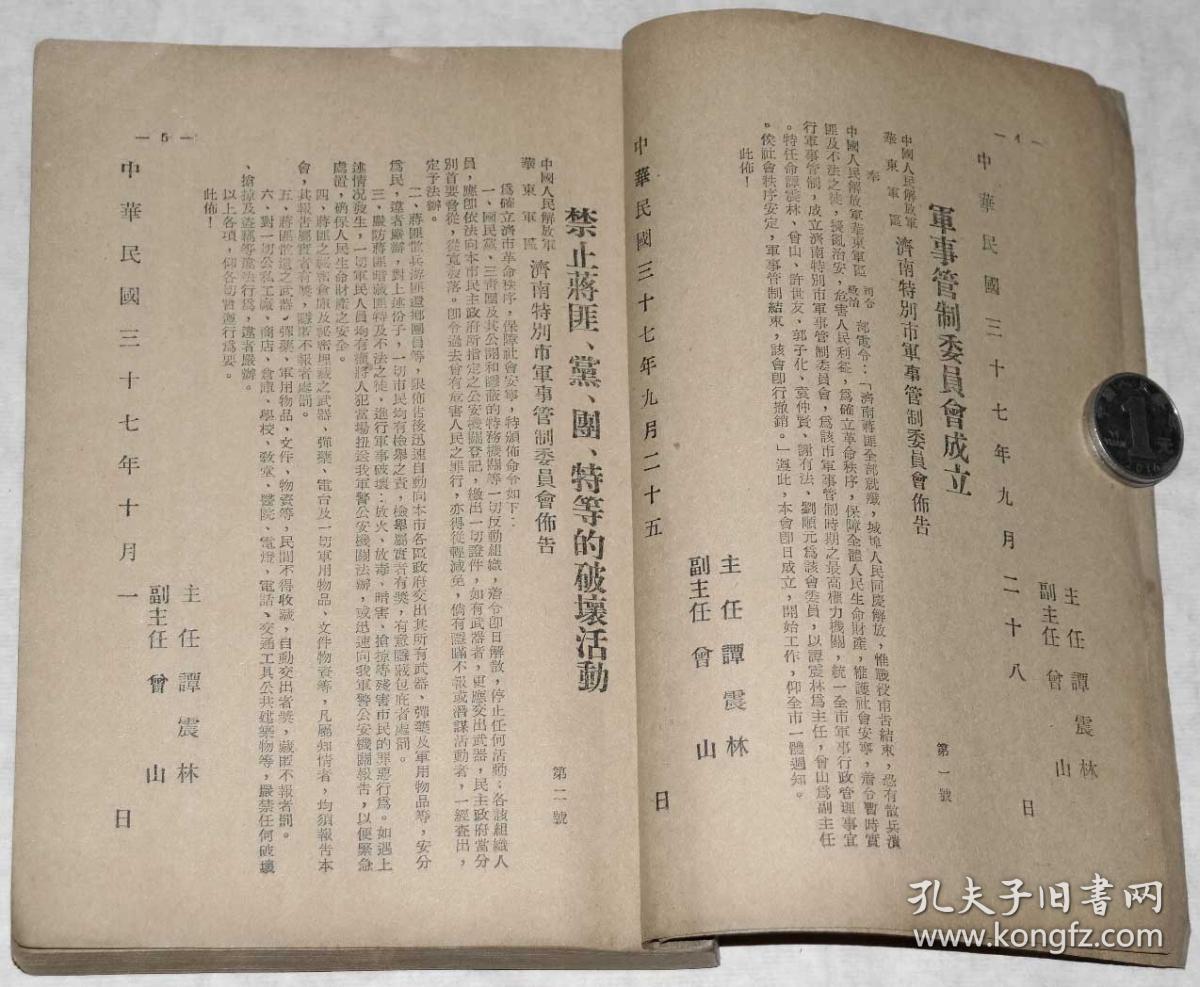 — 4 —
主任 譚震林
副主任 曾山
中華民國三十七年九月二十八日
軍事管制委員會成立
中國人民解放軍
華東軍區
濟南特別市軍事管制委員會佈告
第一號
奉
中國人民解放軍華東軍區 司令 政治 部電令:「濟南蔣匪全部就殲,城埠人民同慶解放,惟戰役甫告結束,恐有散兵潰
匪及不法之徒,擾亂治安,危害人民利益,為確立革命秩序,保障全體人民生命財產,維護社會安寧,着令暫時實
行軍事管制,成立濟南特別市軍事管制委員會,為該市軍事管制時期之最高權力機關,統一全市軍事行政管理事宜
。特任命譚震林、曾山、許世友、郭子化、袁仲賢、謝有法、劉順元為該會委員,以譚震林為主任,曾山為副主任
。俟社會秩序安定,軍事管制結束,該會即行撤銷。」遵此,本會即日成立,開始工作,仰全市一體週知。
此佈!
主任 譚震林
副主任 曾山
中華民國三十七年九月二十五日
— 5 —
禁止蔣匪、黨、團、特等的破壞活動
中國人民解放軍
華東軍區
濟南特別市軍事管制委員會佈告
第二號
為確立濟市革命秩序,保障社會安寧,特頒佈命令如下:
一、國民黨、三青團及其公開和隱蔽的特務機關等一切反動組織,着令即日解散,停止任何活動;各該組織人
員,應即依法向本市民主政府所指定之公安機關登記,繳出一切證件,如有武器者,更應交出武器,民主政府當分
別首要脅從,從寬發落。即令過去曾有危害人民之罪行,亦得從輕減免,倘有隱瞞不報或潛謀活動者,一經查出,
定予法辦。
二、蔣匪散兵游匪還鄉團員等,限佈告後迅速自動向本市各區政府交出其所有武器、彈藥及軍用物品等,安分
為民,違者嚴辦,對上述份子,一切市民均有檢舉之責,檢舉屬實者有獎,有意隱藏包庇者處罰。
三、嚴防蔣匪暗藏匪特及不法之徒,進行軍事破壞:放火、放毒、暗害、搶掠等殘害市民的罪惡行為。如遇上
述情況發生,一切軍民人員均有權將人犯當場扭送我軍警公安機關法辦,或迅速向我軍警公安機關報告,以便緊急
處置,确保人民生命財產之安全。
四、蔣匪之秘密倉庫及祕密埋藏之武器、彈藥、電台及一切軍用物品、文件物資等,凡屬知情者,均須報告本
會,其報告屬實者有獎,隱匿不報者處罰。
五、蔣匪散遺之武器、彈藥、軍用物品、文件、物資等,民間不得收藏,自動交出者獎,藏匿不報者罰。
六、對一切公私工廠、商店、倉庫、學校、教堂、醫院、電燈、電話、交通工具公共建築物等,嚴禁任何破壞
、搶掠及盜竊等違法行為,違者嚴辦。
以上各項,仰各切實遵行為要。
此佈!
主任 譚震林
副主任 曾山
中華民國三十七年十月一日
1
元
YI YUAN
2016
孔夫子旧书网
www.kongfz.com